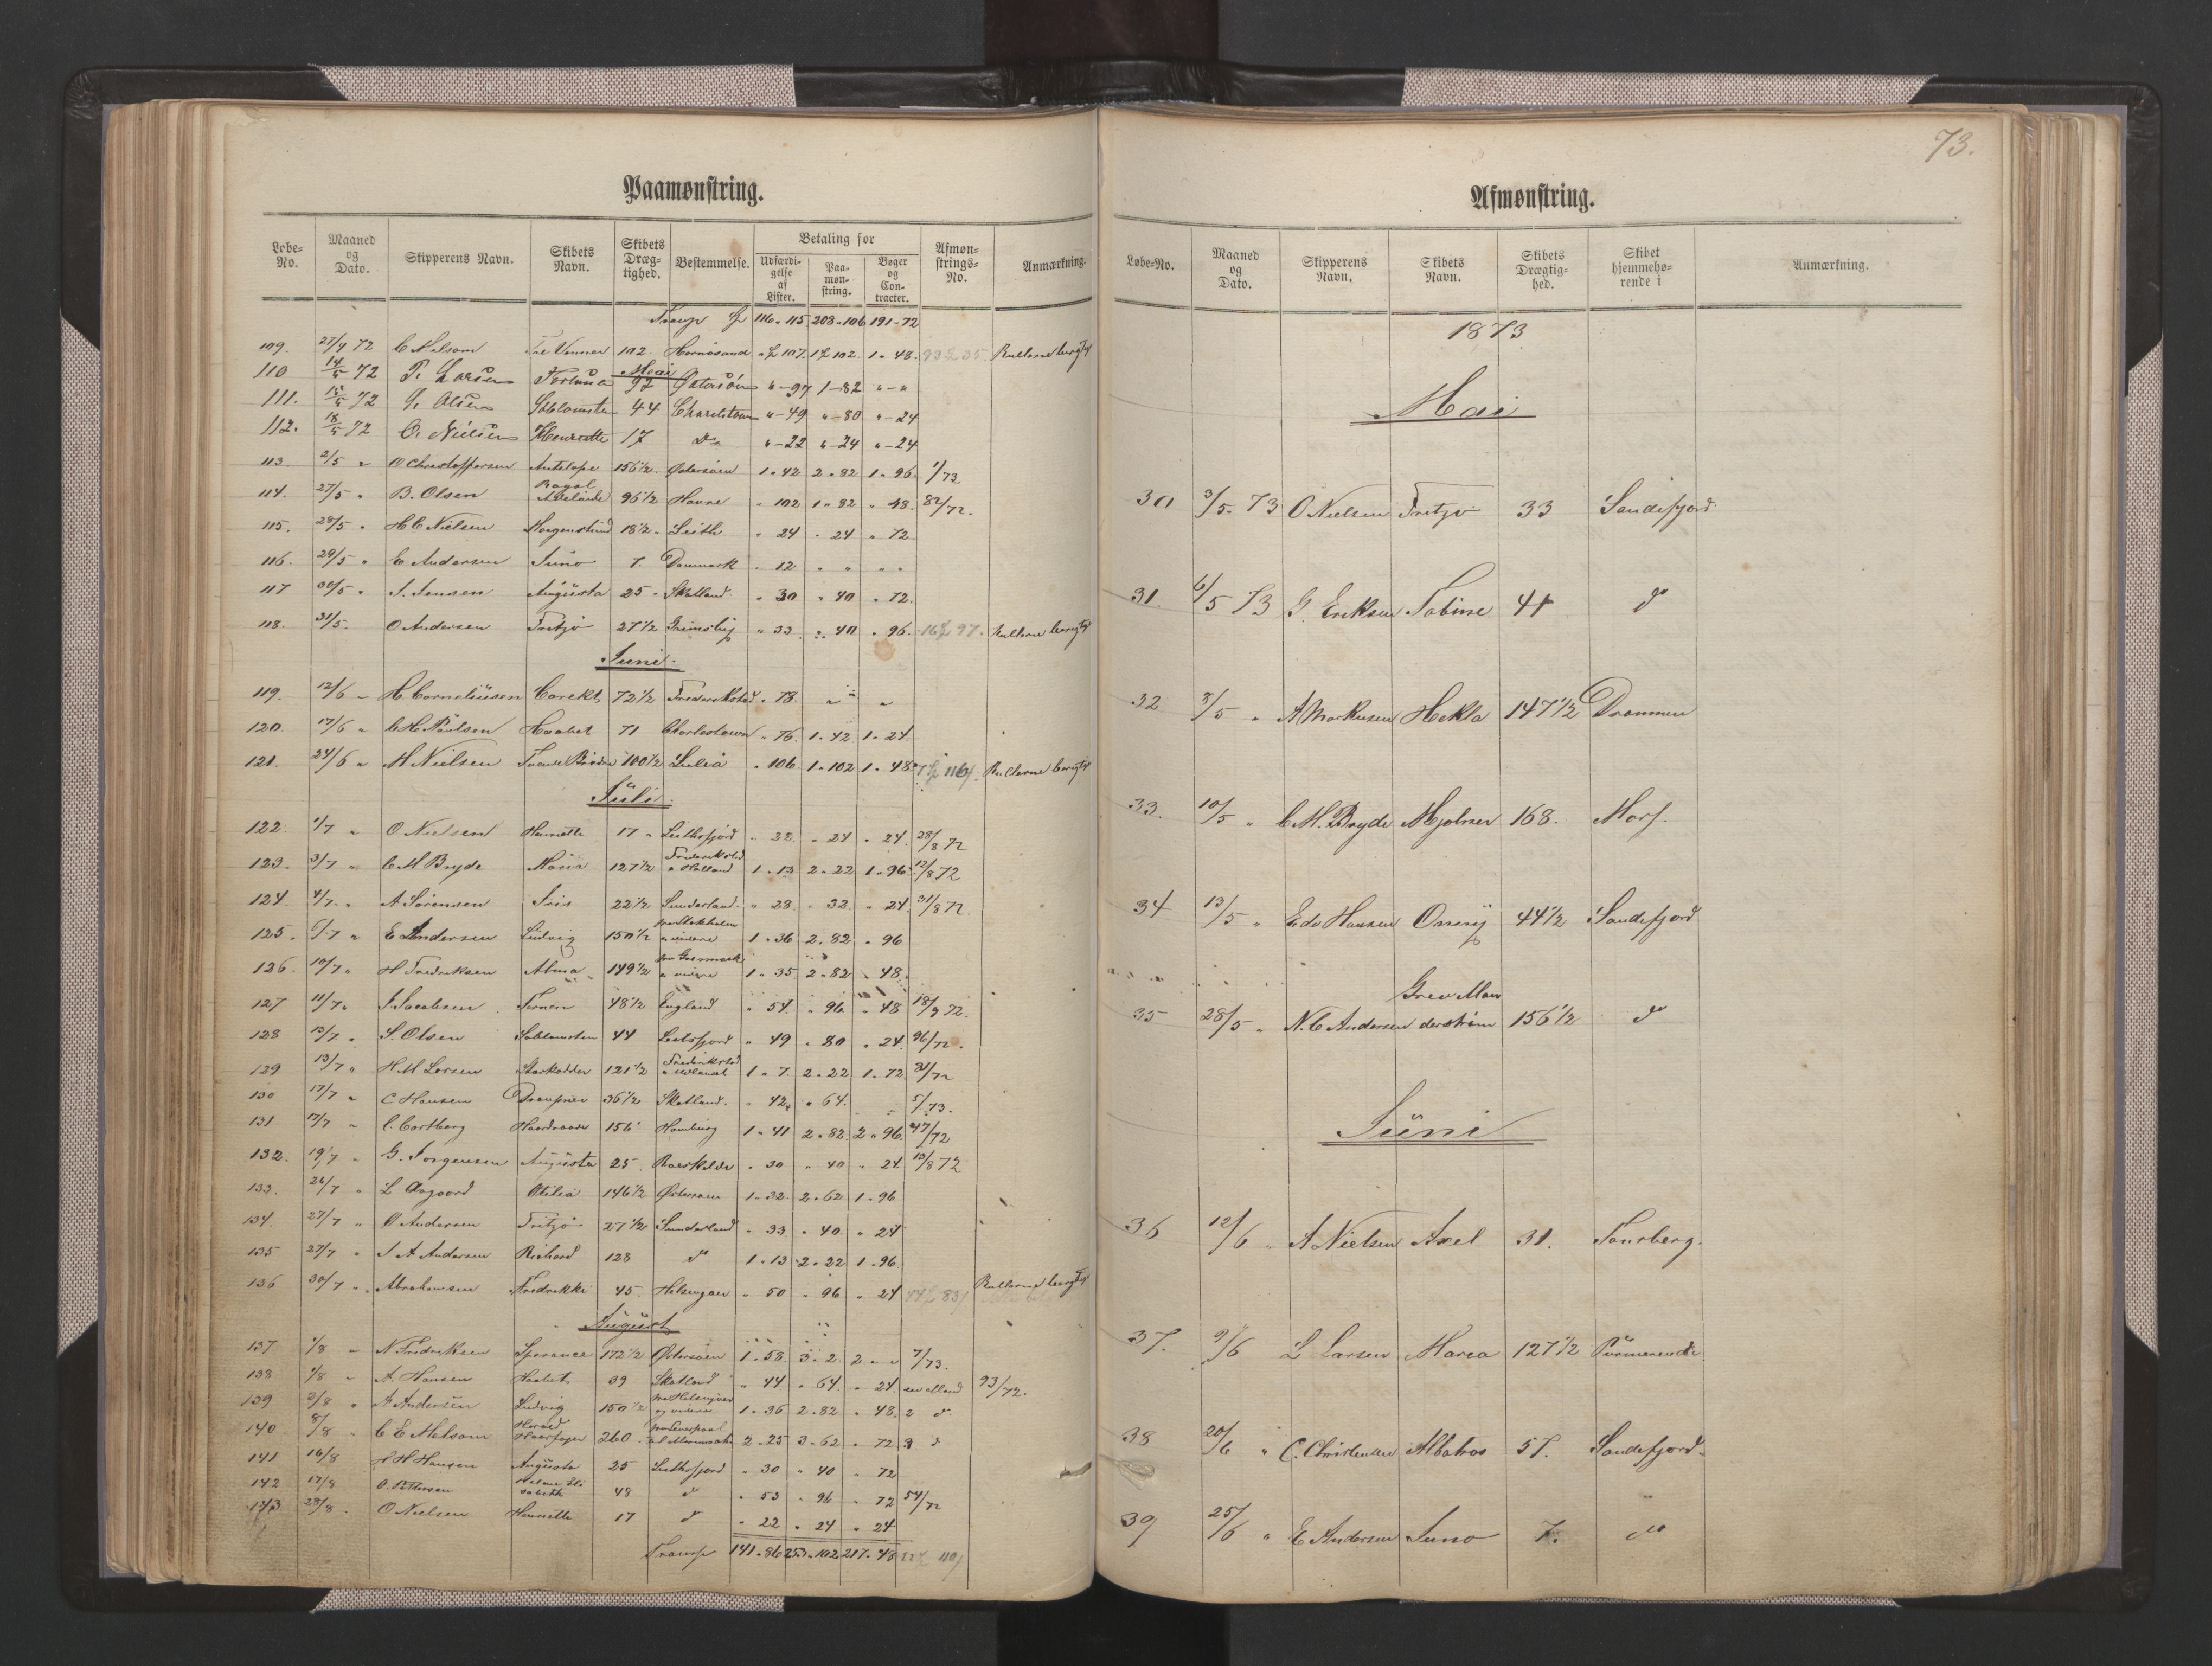 Paamønstring.
Løbe-No. Maaned og Dato. Skipperens Navn. Skibets Navn. Skibets Drægtighed. Bestemmelse. Betaling for Udfærdigelse af Lister. Paamønstring. Bøger og Contracter. Afmønstrings-No. Anmærkning.
Transp 116 " 115 208 " 106 191 - 72
109. 27/4 72 C Melsom Tre Venner 102 Hernøsand " 107. 1 102 1 " 48. Rullerne
Mai
110 14/5 72 P. Larsen Fortuna 92 Østersøen " - 97 1 - 82 " - "
111. 15/5 72 G. Olsen Søblomsten 44 Charlstown " - 49 " - 80 " - 24
112. 18/5 72 O. Nielsen Henriette 17 do " - 22 " - 24 " - 24
113. 2/5 " O Christoffersen Antelope 156 1/2 Østersøen 1 " 42 2 " 82 1 " 96. 1/73.
114. 27/5 " B. Olsen Adelaide 96 1/2 Havre " 102 1 " 82 " 48. 82/72.
115. 28/5 " H C Nielsen Morgenstund 18 1/2 " Leith " 24 " 24 " 72
116. 29/5 " E Andersen Juno 7 Danmark " 12 " " " "
117 30/5 " J. Jensen Augusta 25 " Skotland " 30 " 40 " 72.
118. 31/5. O Andersen Fritzø 27 1/2 Grimsby " 33 " 40 " 96. Rullerne
Juni
119. 12/6 " H Corneliusen Carekt 72 1/2 Frederikstad " 78. " " "
120. 17/6 " C H Paulsen Haabet 71 Charlestown " 76. 1 " 42 1 " 24
121. 24/6 " M Nielsen Tvende Brødre 100 1/2 Luleå " 106 1 " 102 1 " 48. Rullerne
Juli
122. 1/7 " O Nielsen Henriette 17 " Leithsfjord " 22 " 24 " 24. 28/8 72
123. 3/7 " C M Bryde Maria 127 1/2 Frederiksstd a Holland 1 " 13 2 " 22 1 " 96. 12/8 72
124. 4/7 " A Sørensen Iris 22 1/2 Sunderland " 28 " 32. " 24. 31/8 72.
125. 6/7 " E Andersen Ludvig 150 1/2 pr Stokholm a videre 1 " 36 2 " 82 " 96
126. 10/7 " H Fredriksen Alma 149 1/2 a videre 1 " 35 2 " 82 " 48.
127 11/7 " J. Jacobsen 48 1/2 England " 54. " 96 " 48 18/9 72.
128 13/7 " S. Olsen Søblomsten 44 Leithsfjord " 49 " 80 " 24. 96/72.
129 13/7 " H M Larsen Starkodder 121 1/2 Frederikstad 1 " 7. 2 " 22 1 " 72. 31/72
130 17/7 " C Hansen Draupner 36 1/2 Skotland. " 42 " 64. 5/73.
131 17/7 " C. Cortberg Haardraade 156 Hamburg 1 " 41 2 " 82. 2 " 96. 47/72
132. 19/7 " G. Jørgensen Augusta 25. Roeskilde " 30 " 40 " 24. 13/8 72
133. 26/7 " L Aagaard Otilia 146 1/2 Østersøen 1 " 32. 2 " 62 1 " 96
134. 27/7 " O Andersen Fritzø 27 1/2 Sunderland " 33. " 40. " 24
135 27/7 " J A Andersen Richard 128 do 1 " 13 2 " 22 1 " 96.
136 30/7 " Abrahamsen Fredrikke 45. Helsingør " 50 " 96 " 24 Rullerne
August
137 1/8 " N Fredriksen Sperance 172 1/2 Østersøen 1 " 58. 3 " 2. 2 " " 7/73.
138 1/8 " A. Hansen Haabet 39 Skotland " 44 " 64. " 24. 93/72.
139 2/8 " A Andersen Ludvig 150 1/2 pr Helsingør og videre 1 " 36 2 " 82 " 48. 2 do
140 8/8 " C E Melsom Harald Haarfager 260. 2 " 25 3 " 62 " 72 3 do
141 16/8 H H Hansen Augusta 25 Leithsfjord " 30 " 40 " 72
142 17/8 O. Pettersen 48 do " 53 " 96 " 72 54/72
143 28/8. O Nielsen Henriette 17 do " 22 " 24 " 24
Transp 141 " 86 253 " 102 217 " 48
73.
Afmønstring.
Løbe-No. Maaned og Dato. Skipperens Navn. Skibets Navn. Skibets Drægtighed. Skibet hjemmehørende i Anmærkning.
1873
Mai
30 3/5 73 O Nielsen Fritzø 33 Sandefjord
31. 6/5 73 G. Eriksen Sabine 41 do
32 8/5 " A Markusen Hekla 147 1/2 Drammen
33. 10/5 " C M. Bryde Mjølner 168. Marf.
34 13/5 " Edv Hansen Onny 44 1/2 Sandefjord
35 28/5 " N. C Andersen Grev Manderstrøm 156 1/2 do
Juni
36 12/6 " A Nielsen Axel 31. Tønsberg.
37. 9/6 L Larsen Maria 127 1/2 Purmerende
38 20/6 " C. Christensen Albatros 57. Sandefjord
39 25/6 " E Andersen Juno 7. do